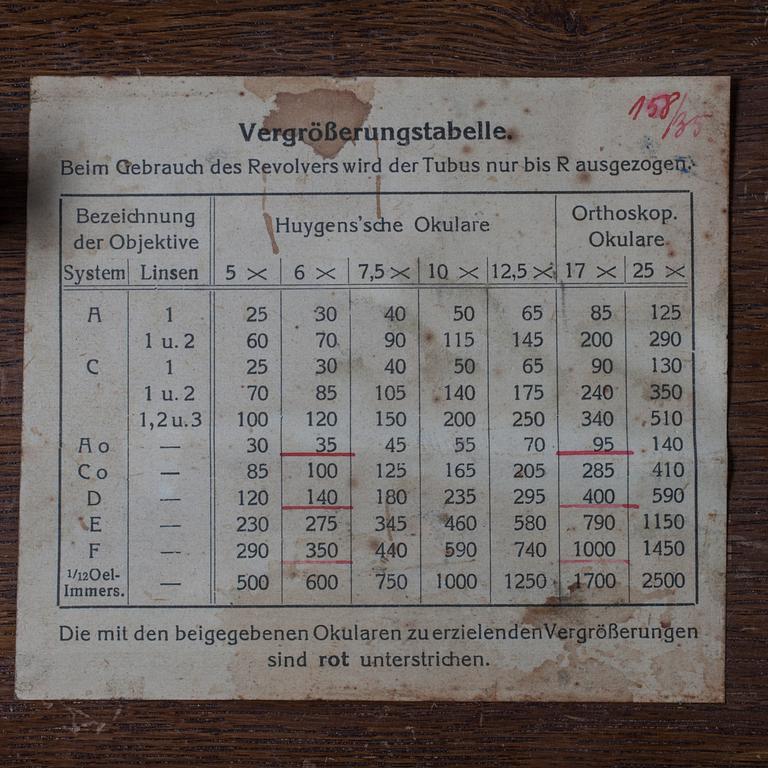 158/35
Vergrößerungstabelle.
Beim Gebrauch des Revolvers wird der Tubus nur bis R ausgezogen.
Bezeichnung der Objektive | Huygens'sche Okulare | Orthoskop. Okulare
System | Linsen | 5 × | 6 × | 7,5 × | 10 × | 12,5 × | 17 × | 25 ×
A | 1 | 25 | 30 | 40 | 50 | 65 | 85 | 125
1 u. 2 | 60 | 70 | 90 | 115 | 145 | 200 | 290
C | 1 | 25 | 30 | 40 | 50 | 65 | 90 | 130
1 u. 2 | 70 | 85 | 105 | 140 | 175 | 240 | 350
1,2 u. 3 | 100 | 120 | 150 | 200 | 250 | 340 | 510
Ao | — | 30 | 35 | 45 | 55 | 70 | 95 | 140
Co | — | 85 | 100 | 125 | 165 | 205 | 285 | 410
D | — | 120 | 140 | 180 | 235 | 295 | 400 | 590
E | — | 230 | 275 | 345 | 460 | 580 | 790 | 1150
F | — | 290 | 350 | 440 | 590 | 740 | 1000 | 1450
1/12 Oel-Immers. | — | 500 | 600 | 750 | 1000 | 1250 | 1700 | 2500
Die mit den beigegebenen Okularen zu erzielenden Vergrößerungen
sind rot unterstrichen.